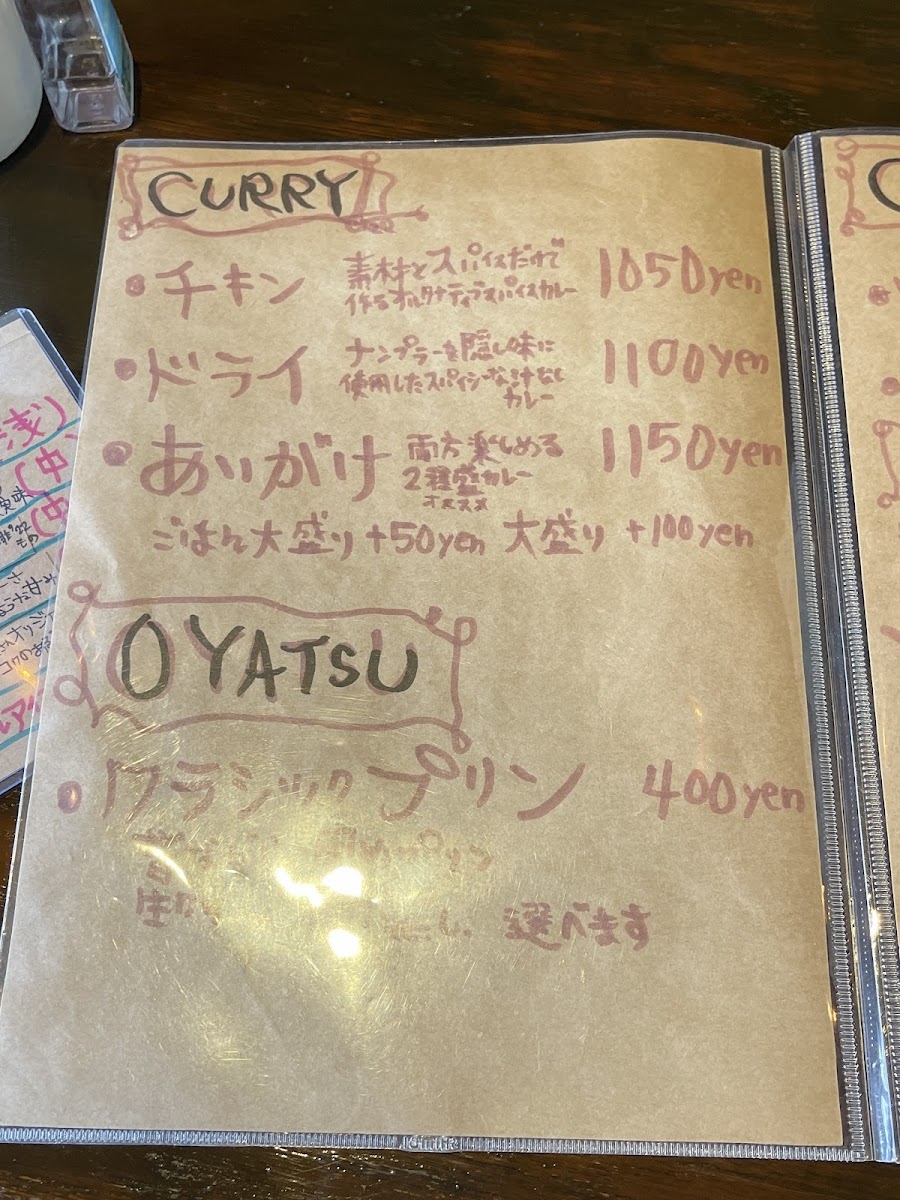 CURRY
・チキン 素材とスパイスだけで 1050yen
作るオルタナティブスパイスカレー
・ドライ ナンプラーを隠し味に 1100yen
使用したスパイシーな汁なし
カレー
・あいがけ 両方楽しめる 1150yen
2種盛カレー
オススメ
ごはん大盛り +50yen 大盛り +100yen
OYATSU
・クラシックプリン 400yen
プリン
選べます
浅)
(中
実味
もの
コクのある